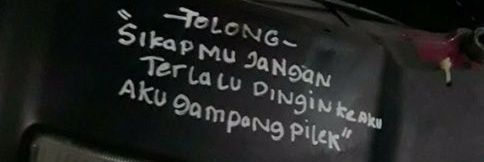 -TOLONG-
"SIKAPMU JANGAN
TERLALU DINGIN KEAKU
AKU GAMPANG PILEK"